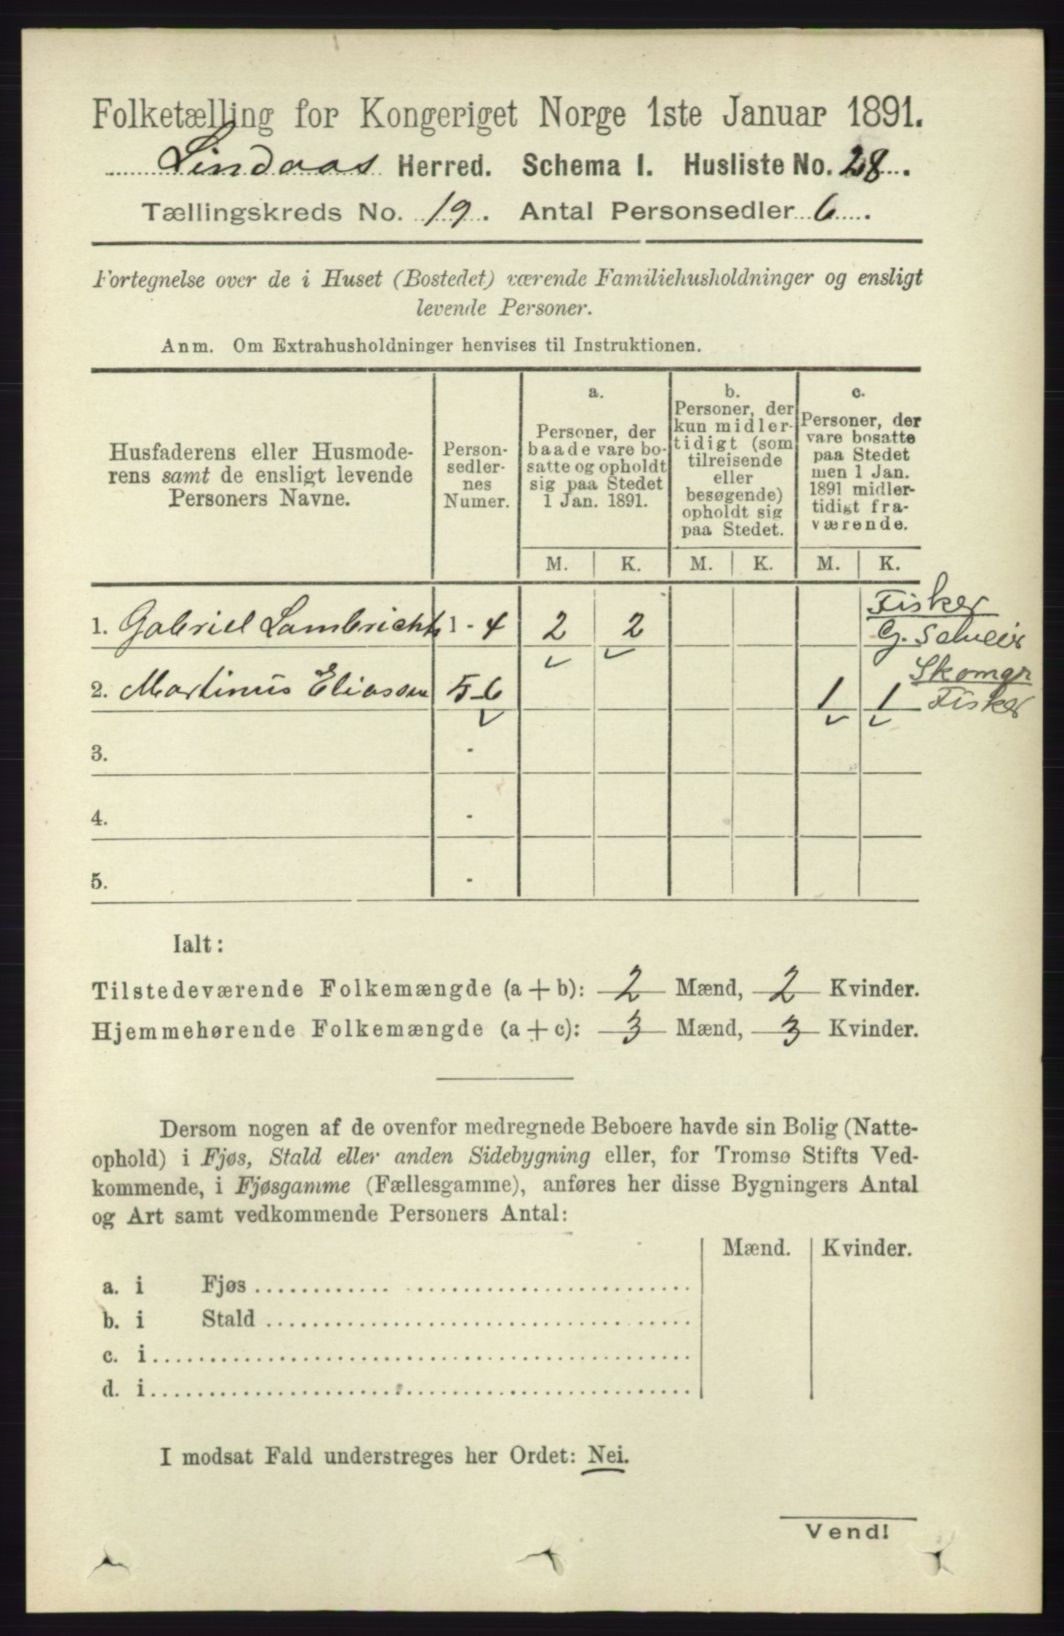 Folketælling for Kongeriget Norge 1ste Januar 1891.
Lindaas Herred. Schema I. Husliste No. 28.
Tællingskreds No. 19. Antal Personsedler 6.
Fortegnelse over de i Huset (Bostedet) værende Familiehusholdninger og ensligt
levende Personer.
Anm. Om Extrahusholdninger henvises til Instruktionen.
Husfaderens eller Husmode-
rens samt de ensligt levende
Personers Navne.
Person-
sedler-
nes
Numer.
a.
Personer, der
baade vare bo-
satte og opholdt
sig paa Stedet
1 Jan. 1891.
b.
Personer, der
kun midler-
tidigt (som
tilreisende
eller
besøgende)
opholdt sig
paa Stedet.
c.
Personer, der
vare bosatte
paa Stedet
men 1 Jan.
1891 midler-
tidigt fra-
værende.
M. K. M. K. M. K.
Fisker
1. Gabriel Lambrichts 1-4 2 2 G.
Skomgr
2. Martinus Eliassen 5-6 1 1 Fisker
3. -
4. -
5. -
Ialt:
Tilstedeværende Folkemængde (a+b): 2 Mænd, 2 Kvinder.
Hjemmehørende Folkemængde (a+c): 3 Mænd, 3 Kvinder.
Dersom nogen af de ovenfor medregnede Beboere havde sin Bolig (Natte-
ophold) i Fjøs, Stald eller anden Sidebygning eller, for Tromsø Stifts Ved-
kommende, i Fjøsgamme (Fællesgamme), anføres her disse Bygningers Antal
og Art samt vedkommende Personers Antal:
Mænd. Kvinder.
a. i Fjøs
b. i Stald
c. i
d. i
I modsat Fald understreges her Ordet: Nei.
Vend!